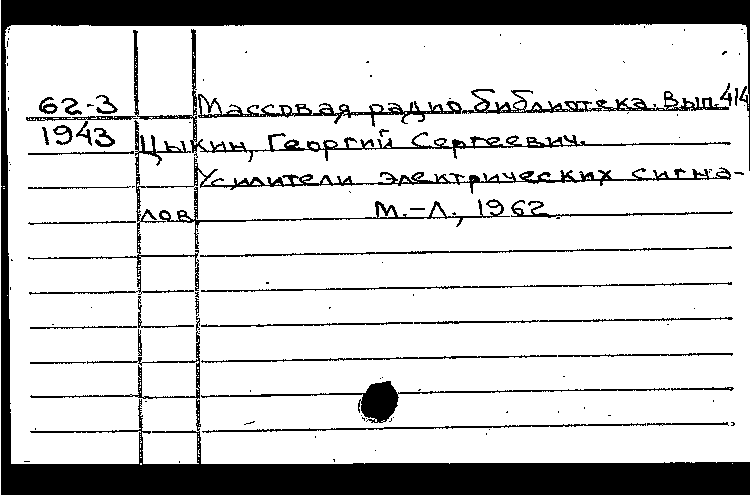 62-3 Массовая радио библиотека. Вып. 414
1943 Цыкин, Георгий Сергеевич.
Усилители электрических сигна-
лов М.-Л., 1962